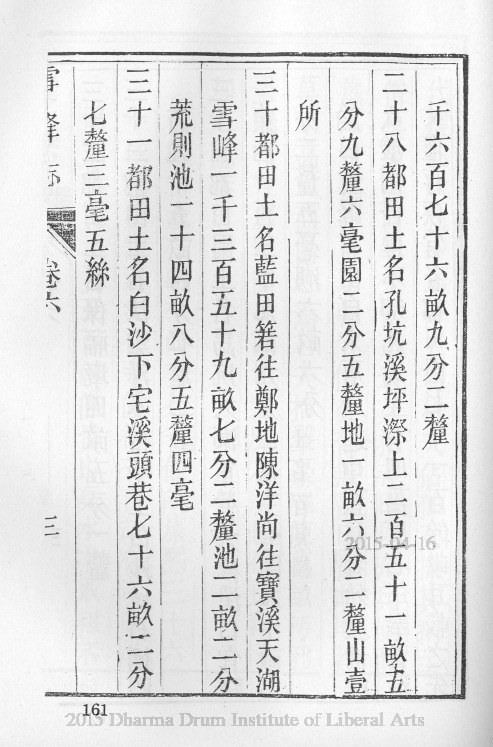 千六百七十六畝九分二釐
二十八都田土名孔坑溪坪漈上二百五十一畝五
分九釐六毫園二分五釐地一畝六分二釐山壹
所
三十都田土名藍田箬往鄭地陳洋尚往寶溪天湖
雪峰一千三百五十九畝七分二釐池二畝二分
荒則池一十四畝八分五釐四毫
三十一都田土名白沙下宅溪頭巷七十六畝二分
七釐三毫五絲
雪峰志
卷六
三
161
2015-04-16
2015 Dharma Drum Institute of Liberal Arts